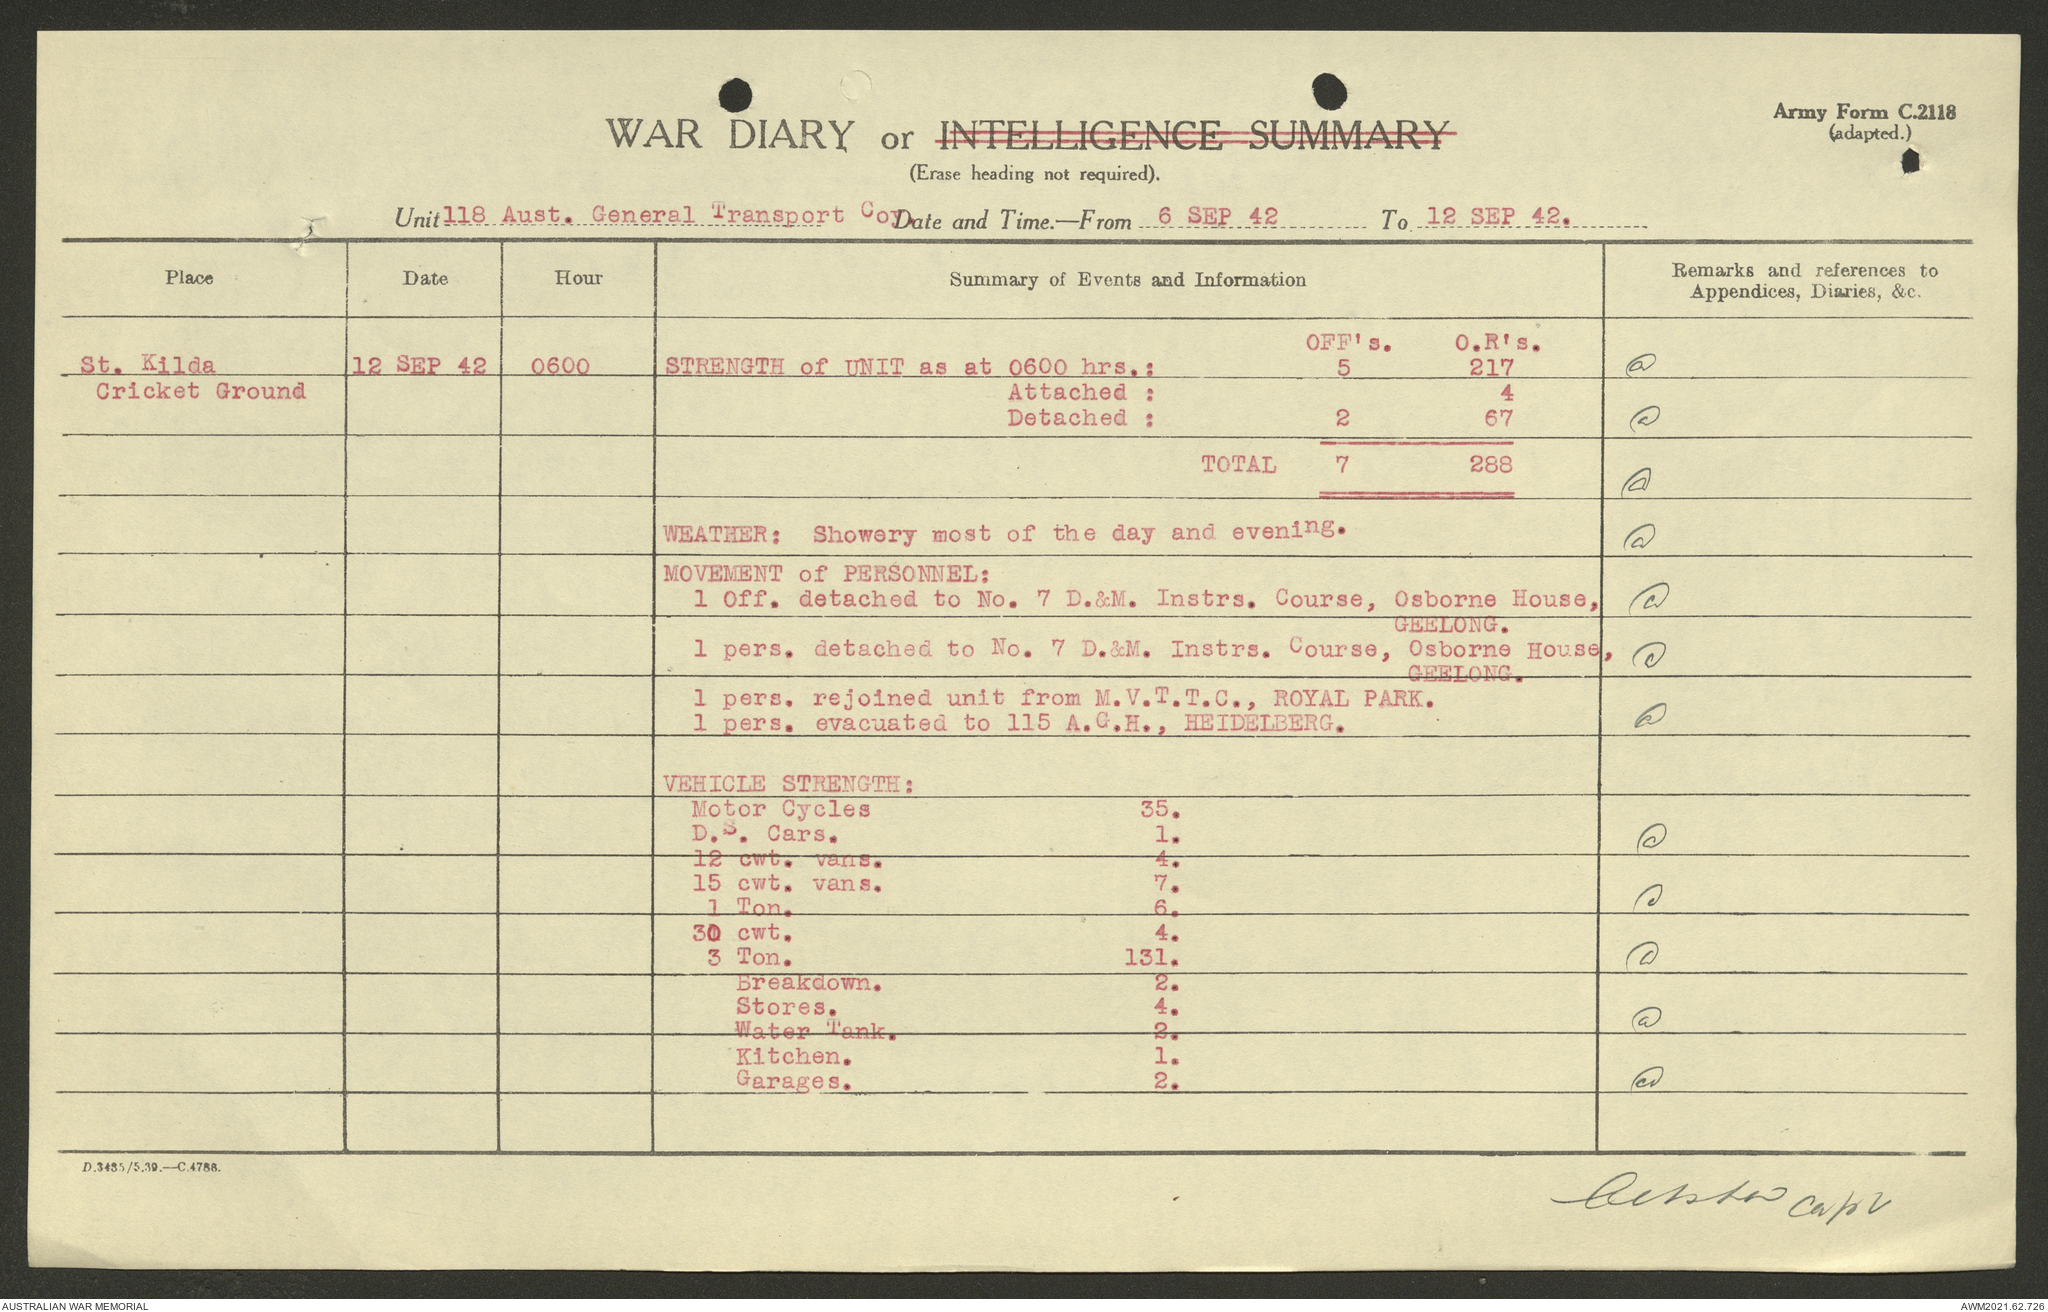 Army Form C.2118
(adapted.)
WAR DIARY or INTELLIGENCE SUMMARY
(Erase heading not required).
Unit 118 Aust. General Transport Coy. Date and Time.—From 6 SEP 42 To 12 SEP 42.
Place Date Hour Summary of Events and Information Remarks and references to
Appendices, Diaries, &c.
OFF's. O.R's.
St. Kilda 12 SEP 42 0600 STRENGTH of UNIT as at 0600 hrs.: 5 217
Cricket Ground Attached : 4
Detached : 2 67
TOTAL 7 288
WEATHER: Showery most of the day and evening.
MOVEMENT of PERSONNEL:
1 Off. detached to No. 7 D.&M. Instrs. Course, Osborne House,
GEELONG.
1 pers. detached to No. 7 D.&M. Instrs. Course, Osborne House,
GEELONG.
1 pers. rejoined unit from M.V.T.T.C., ROYAL PARK.
1 pers. evacuated to 115 A.G.H., HEIDELBERG.
VEHICLE STRENGTH:
Motor Cycles 35.
D.S. Cars. 1.
12 cwt. vans. 4.
15 cwt. vans. 7.
1 Ton. 6.
30 cwt. 4.
3 Ton. 131.
Breakdown. 2.
Stores. 4.
Water Tank. 2.
Kitchen. 1.
Garages. 2.
D.3485/5.39.—C.4788.
Capt
AUSTRALIAN WAR MEMORIAL
AWM2021.62.726